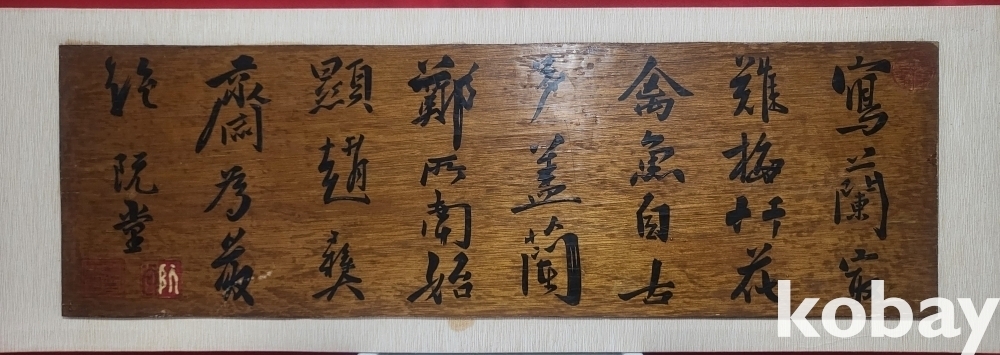 寫蘭最
難梅竹花
禽魚自古
多蓋蘭
鄭所南始
顯趙彝
齋為最
絶 阮堂
阮
kobay